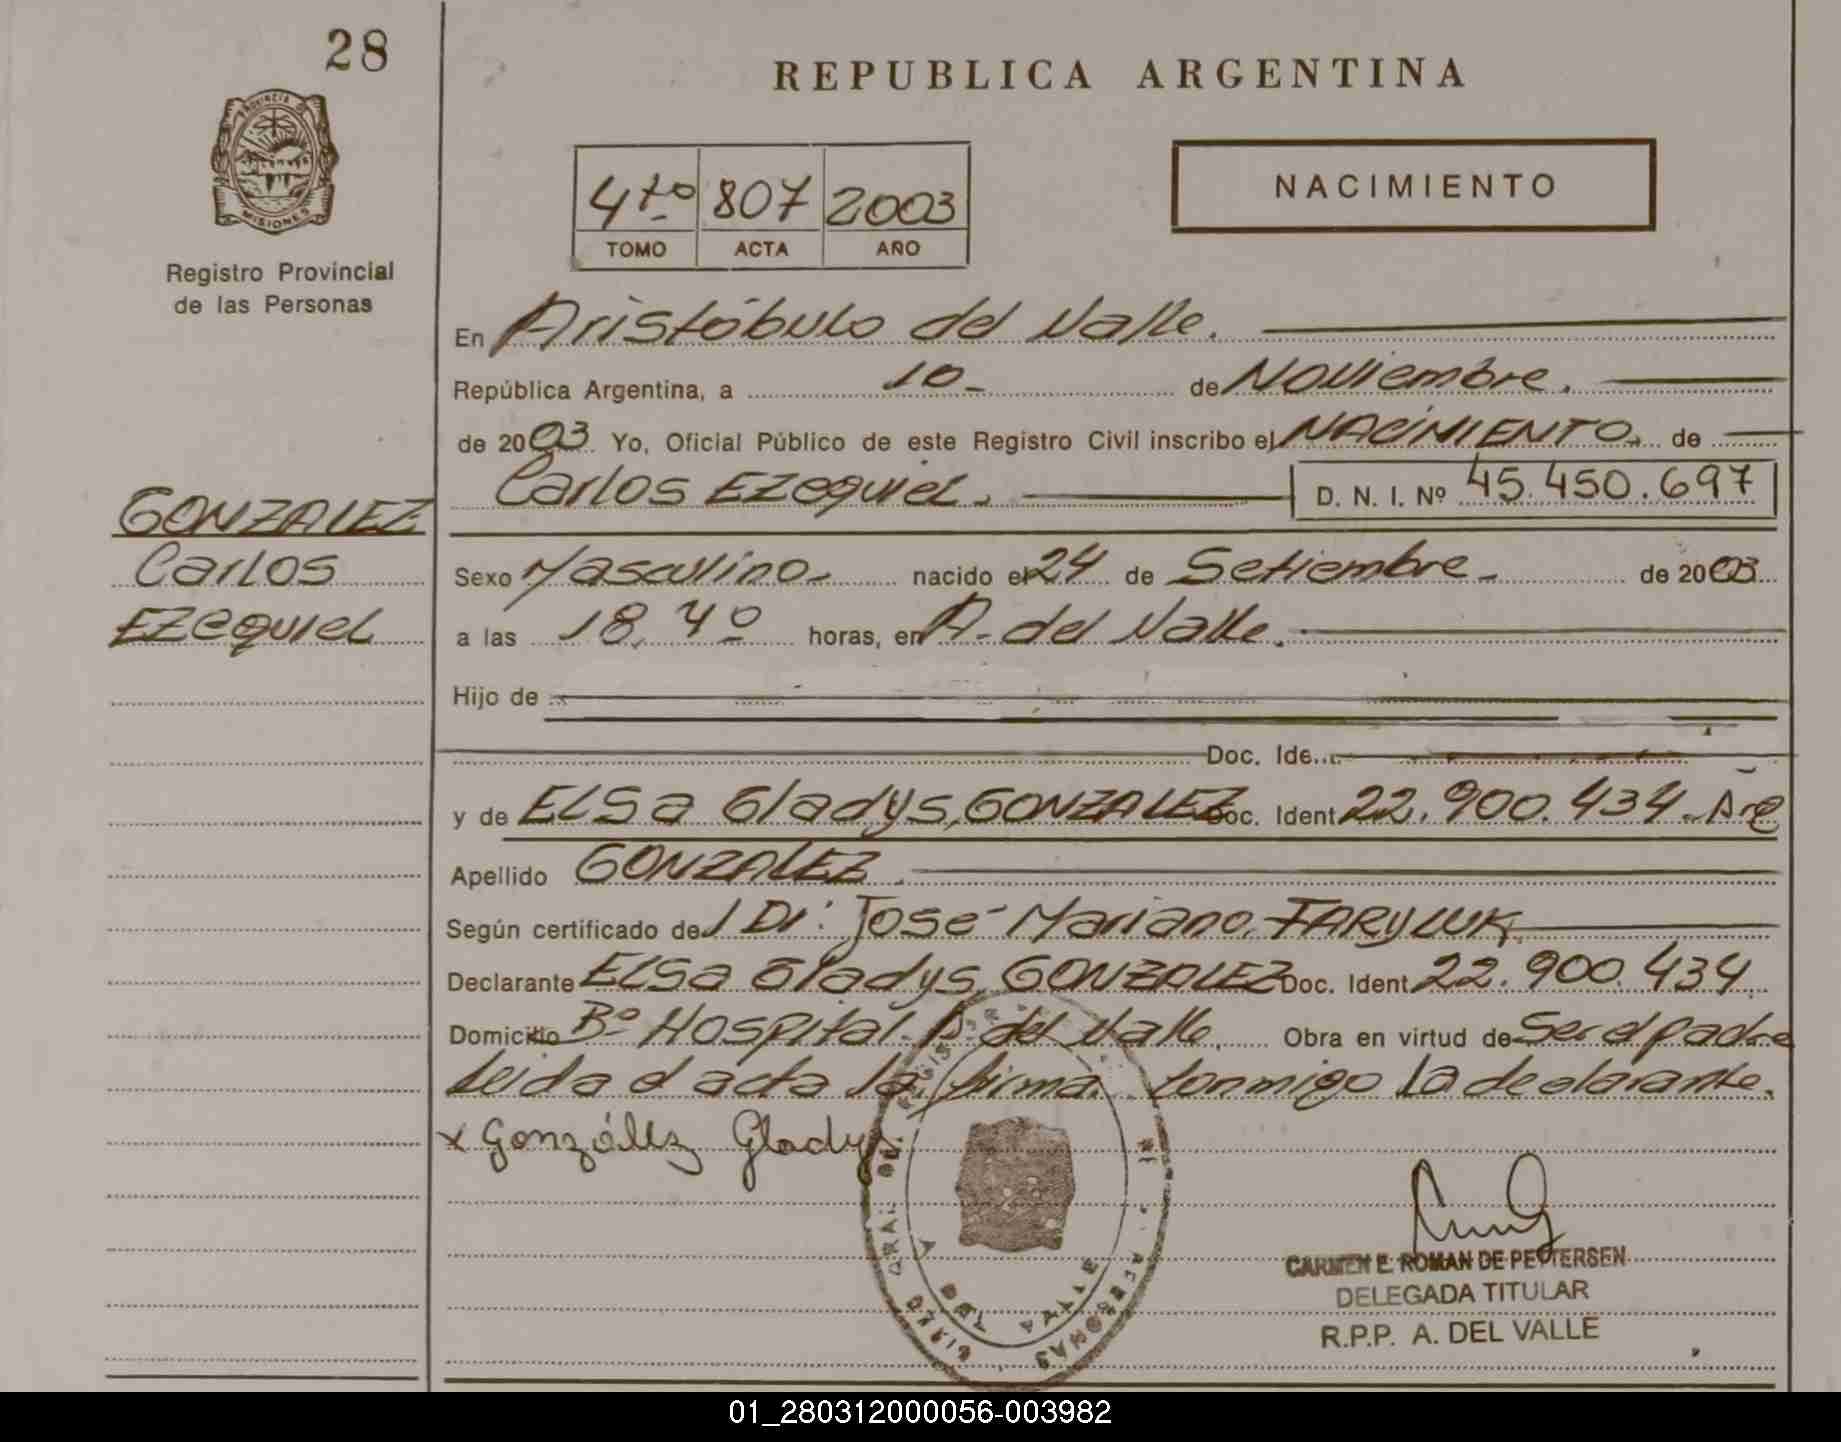 28
REPUBLICA ARGENTINA
PROVINCIA DE
MISIONES
Registro Provincial
de las Personas
4to 807 2003
TOMO ACTA AÑO
NACIMIENTO
En Aristóbulo del Valle.
República Argentina, a 10 de Noviembre.
de 2003 Yo, Oficial Público de este Registro Civil inscribo el NACIMIENTO de
Carlos EZequiel. D. N. I. Nº 45.450.697
GONZALEZ
Carlos
EZequiel
Sexo Masculino nacido el 24 de Setiembre de 2003
a las 18,40 horas, en A. del Valle.
Hijo de
Doc. Ide
y de ELSa Gladys, GONZALEZ Doc. Ident. 22.900.434
Apellido GONZALEZ
Según certificado de Dr. José Mariano, FARYLUK
Declarante ELSa Gladys, GONZALEZ Doc. Ident. 22.900.434
Domicilio Bº Hospital A. del Valle, Obra en virtud de Ser el padre
Leida el acta la firma conmigo la declarante.
x González Gladys
CARMEN E. ROMAN DE PETTERSEN
DELEGADA TITULAR
R.P.P. A. DEL VALLE
01_280312000056-003982